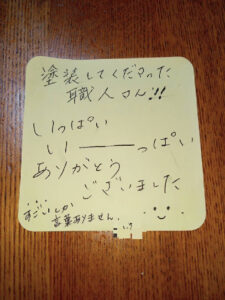 塗装してくださった
職人さん!!
いっぱい
い――っぱい
ありがとう
ございました
すごいしか
言葉ありません.